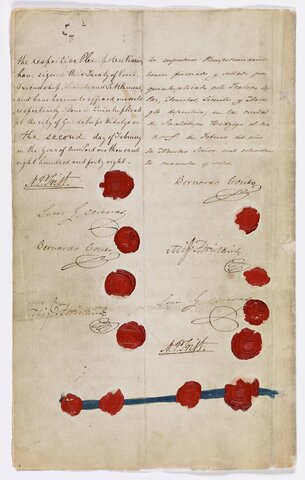 the respective Plenipotentiaries
have signed this Treaty of Peace,
Friendship, Limits and Settlement,
and have hereunto affixed our seals
respectively. Done in Quintuplicate
at the city of Guadalupe Hidalgo on
the second day of February
in the year of Our Lord one thousand
eight hundred and forty eight.
respectivos Plenipotenciarios
hemos firmado y sellado por
quintuplicado este Tratado de
Paz, Amistad, Limites y Arre
glo definitivo, en la ciudad
de Guadalupe Hidalgo el dia
dos de Febrero del año
de Nuestro Señor mil ochocien
tos cuarenta y ocho.
N. P. Trist.
Luis G. Cuevas
Bernardo Couto
Migl Atristain
Bernardo Couto
Migl Atristain
Luis G. Cuevas
N. P. Trist.